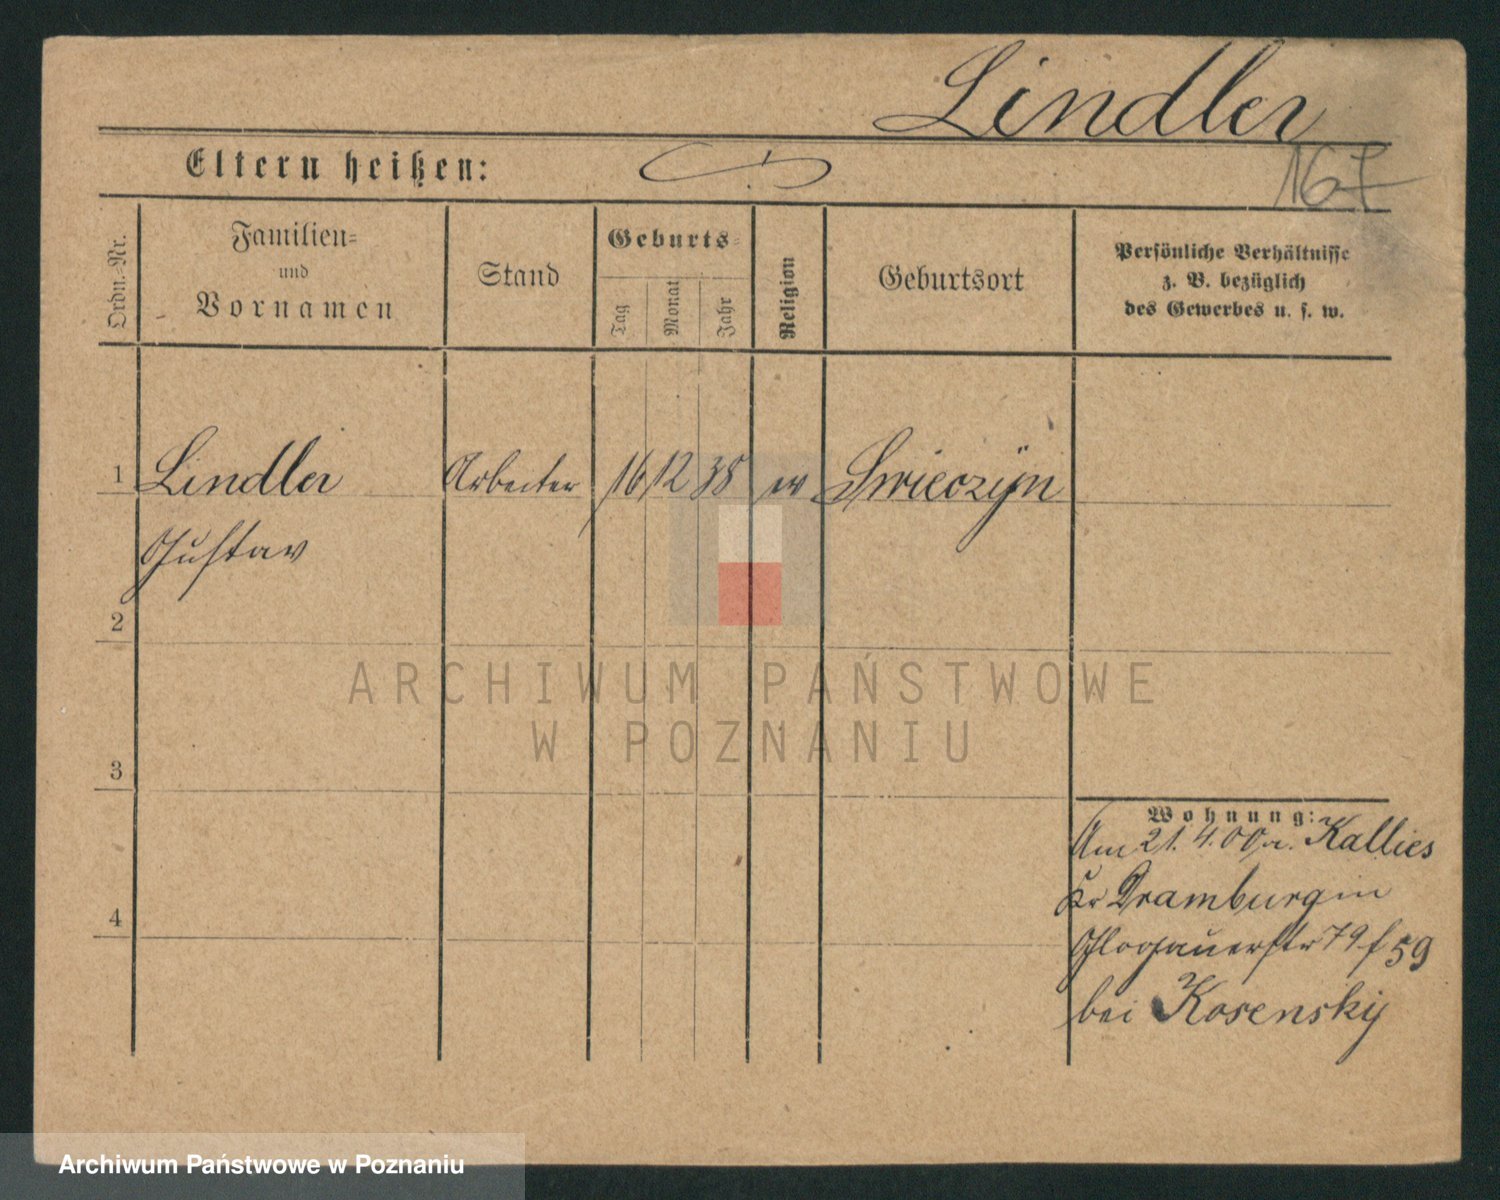 Lindler
Eltern heißen:
167
Ordn.-Nr.
Familien-
und
Vornamen
Stand
Geburts-
Tag
Monat
Jahr
Religion
Geburtsort
Persönliche Verhältnisse
z. B. bezüglich
des Gewerbes u. s. w.
1 Lindler Arbeiter 16 12 38 ev Swieczyn
Gustav
2
ARCHIWUM PAŃSTWOWE
W POZNANIU
3
Wohnung:
Am 21. 4. 00 a. Kallies
Kr Dramburg in
4
Glogauerstr 79 f 59
bei Kosensky
Archiwum Państwowe w Poznaniu